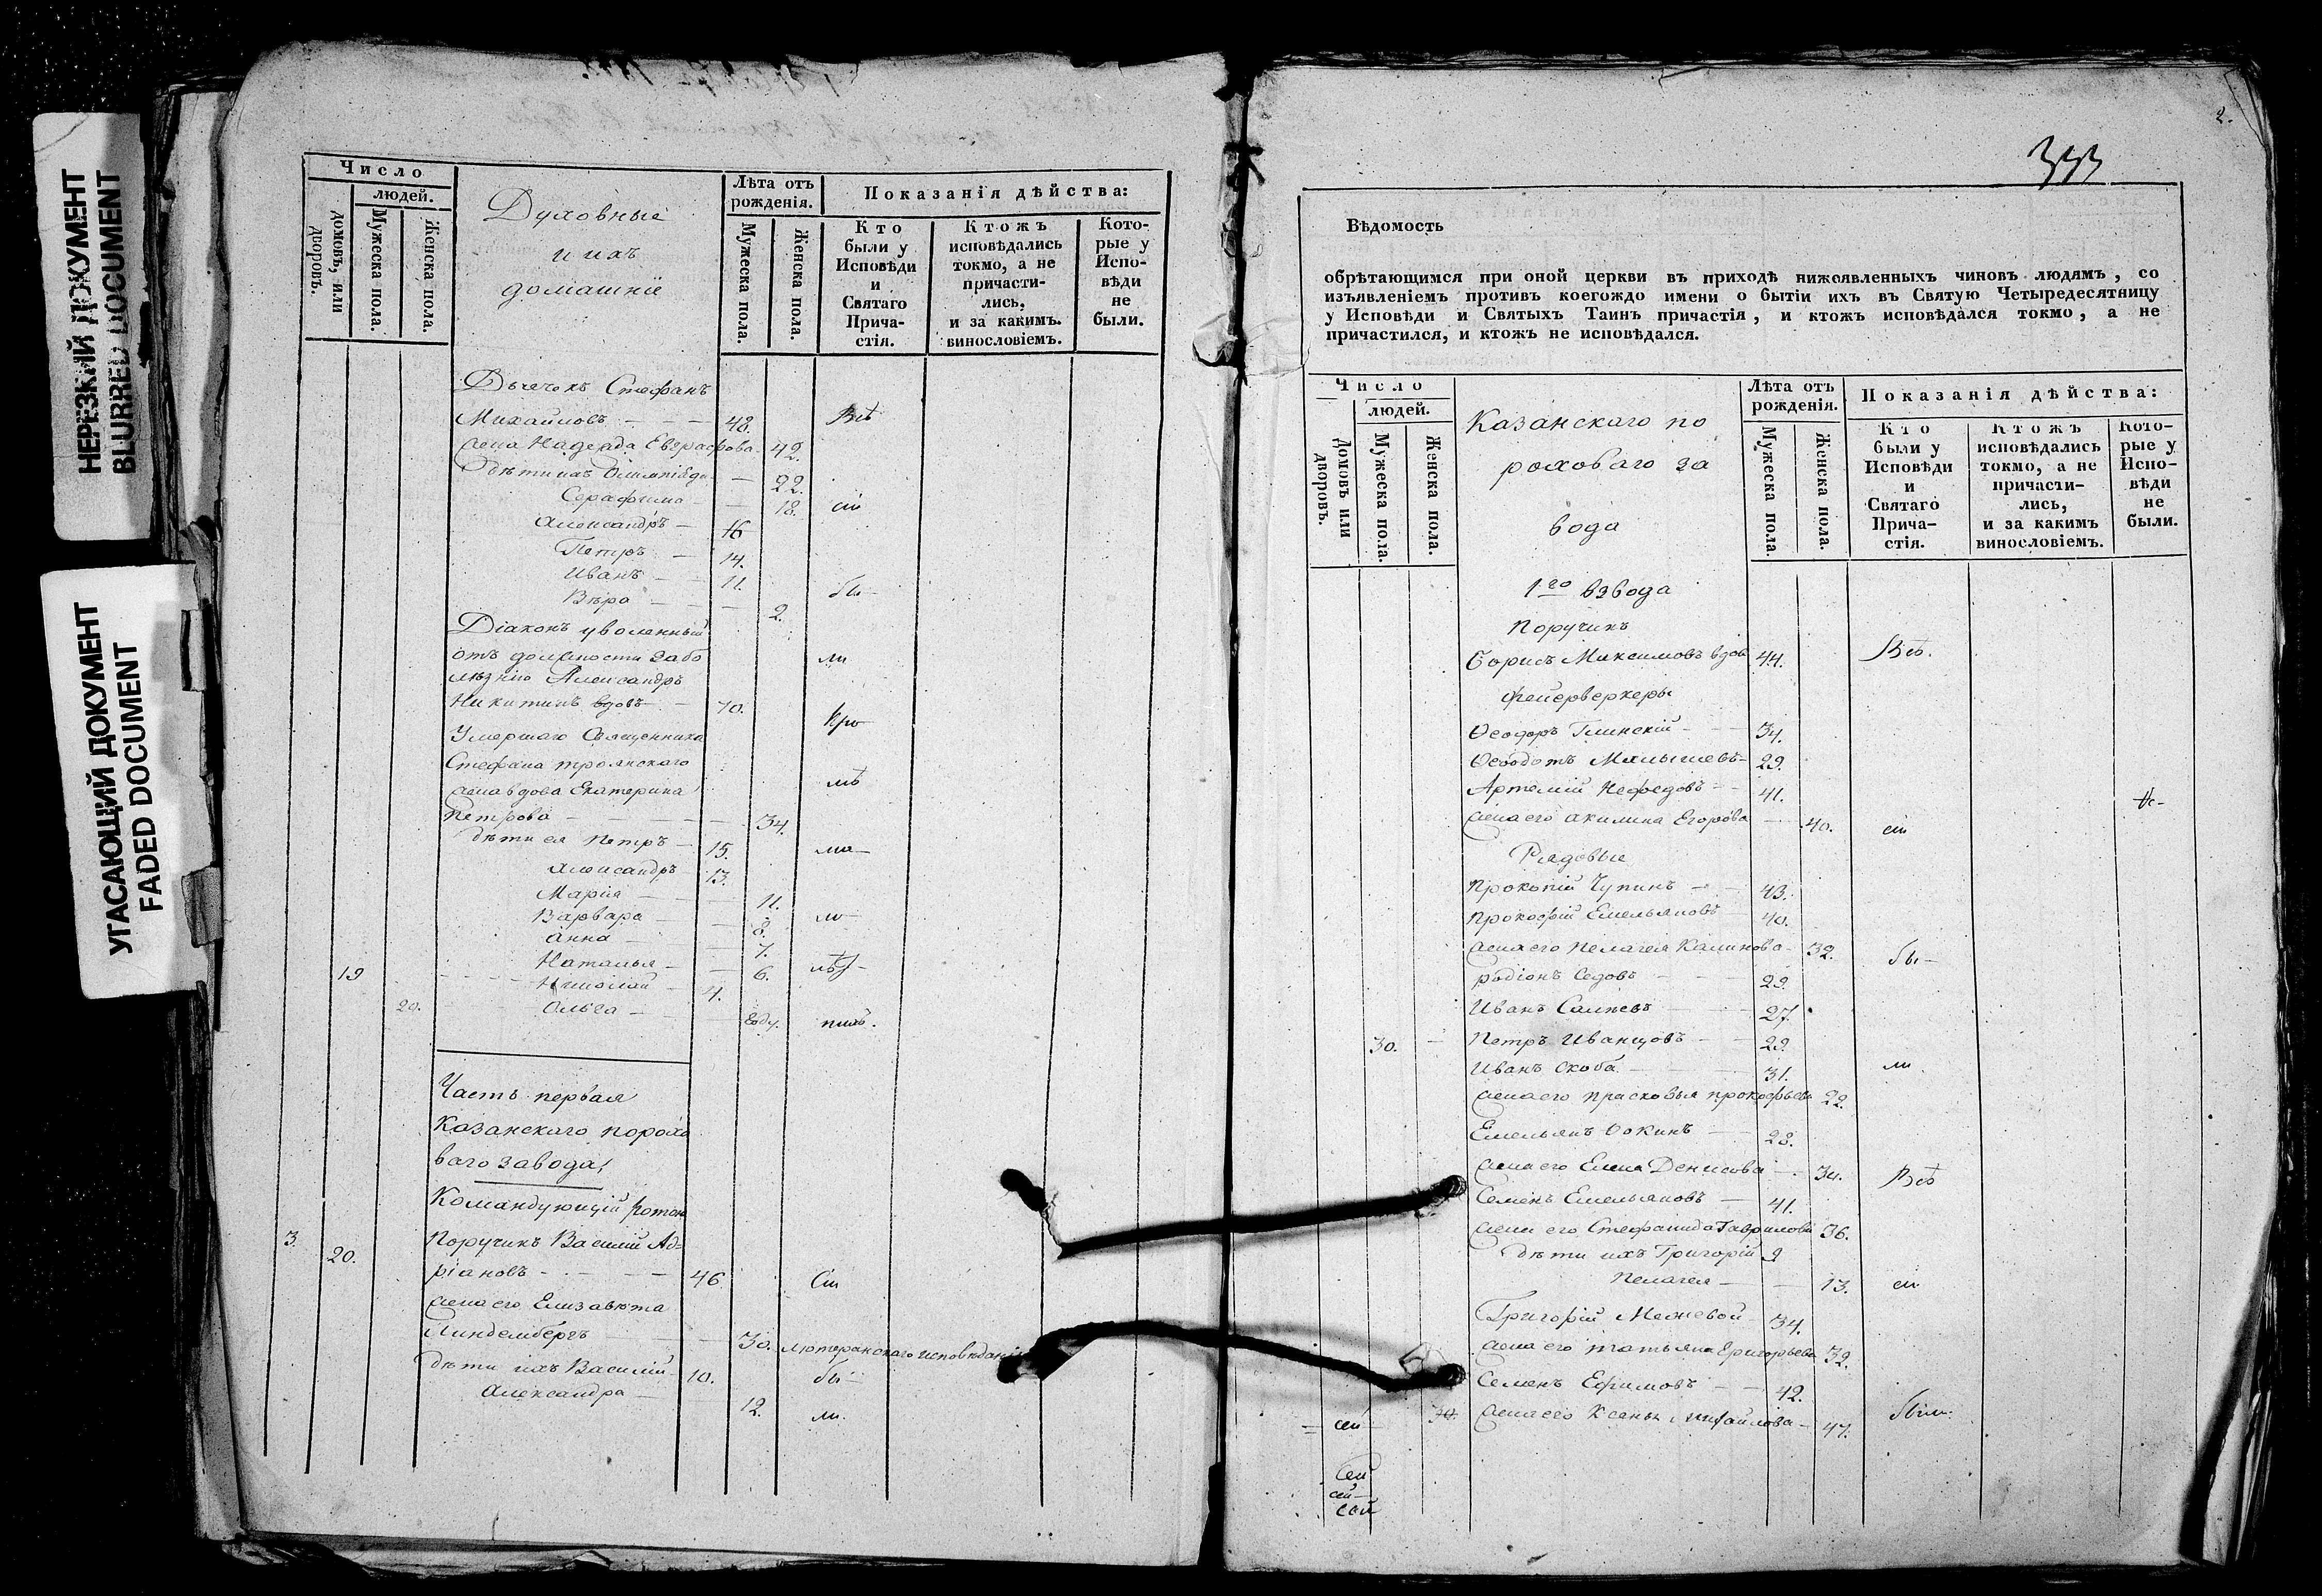 НЕРЕЗКИЙ ДОКУМЕНТ
BLURRED DOCUMENT
УГАСАЮЩИЙ ДОКУМЕНТ
FADED DOCUMENT
Число
людей.
домовъ, или дворовъ.
Мужеска пола.
Женска пола.
Духовные
и ихъ
домашніе
Лѣта отъ рожденія.
Мужеска пола.
Женска пола.
Показанія дѣйства:
Кто были у Исповѣди и Святаго Причастія.
Ктожъ исповѣдались токмо, а не причастились, и за какимъ винословіемъ.
Которые у Исповѣди не были.
Дьячекъ Стефанъ
Михайловъ — — 48. Всѣ
жена Надежда Евграфова 42.
дѣти ихъ Олимпіада — 22.
Серафима — 18. сіи
Александръ — 16
Петръ — 14.
Иванъ — 11.
Вѣра — — 2. бы—
Діаконъ уволенный
отъ должности за бо ли
лѣзнію Александръ
Никитинъ вдовъ — 70. Кро
Умершаго Священника
Стефана Троянскаго
жена вдова Екатерина мѣ
Петрова — — — 34.
дѣти ея Петръ — 15. ма—
Александръ 13.
Марія — 11.
Варвара — 8. ло—
Анна — 7.
Наталья — 6. лѣт—
19 Николай — 4.
20. Ольга — году. ныхъ.
Часть первая
Казанскаго порохо
ваго завода,
Командующій ротою
3. 20. Поручикъ Василій Ад=
ріановъ — — — 46 Сіи
жена его Елизавета
Линдембергъ — — 30. лютеранскаго исповѣданія
дѣти ихъ Василій 10. бы—
Александра — 12. ли.
2.
333
Вѣдомость
обрѣтающимся при оной церкви въ приходѣ нижеявленныхъ чиновъ людямъ, со
изъявленіемъ противъ коегождо имени о бытіи ихъ въ Святую Четыредесятницу
у Исповѣди и Святыхъ Таинъ причастія, и ктожъ исповѣдался токмо, а не
причастился, и ктожъ не исповѣдался.
Число
людей.
Домовъ или дворовъ.
Мужеска пола.
Женска пола.
Казанскаго по
роховаго за
вода
Лѣта отъ рожденія.
Мужеска пола.
Женска пола.
Показанія дѣйства:
Кто были у Исповѣди и Святаго Причастія.
Ктожъ исповѣдались токмо, а не причастились, и за какимъ винословіемъ.
Которые у Исповѣди не были.
1го взвода
Поручикъ
Борисъ Максимовъ вдов 44. Всѣ.
Фейерверкеры
Ѳеодоръ Глинскій — 34.
Ѳеодотъ Малышевъ — 29.
Артемій Нефедовъ — 41.
жена его Акилина Егорова — 40. сіи
Рядовые
Прокопій Чупинъ — 43.
Прокофій Емельяновъ 40.
жена его Пелагея Калинова — 32. бы—
Родіонъ Седовъ — 29.
Иванъ — 27.
30. — Петръ Иванцовъ — 29.
Иванъ Скоба — 31. ли
жена его Прасковья Прокофьева 22.
Емельянъ — 28.
жена его Елена Денисова — 34. Всѣ
Семенъ Емельяновъ — 41.
жена его Стефанида Гаврилова 36.
дѣти ихъ Григорій 9
Пелагея — — 13. сіи
Григорій Межевой 34.
жена его Татьяна Григорьева 32.
Семенъ Ефимовъ — 42.
30. жена его Ксенья Михайлова — 47. были.